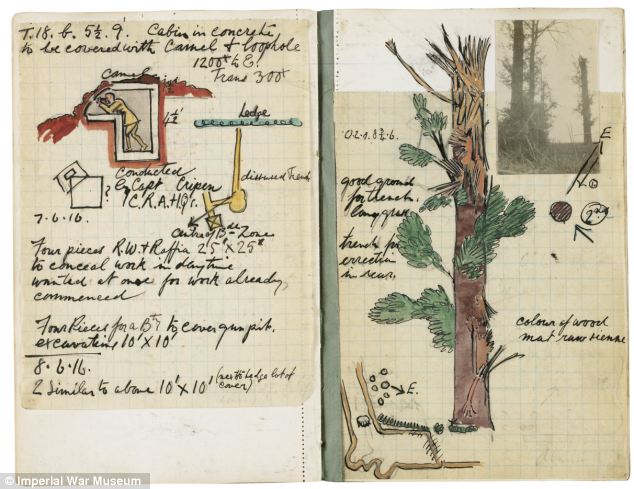 T.18. b. 5½. 9. Cabin in concrete
to be covered with Camel & loophole
1200ˣ to E.
Trans 300ˣ
Camel
4½'
Conducted
by Capt
C.R.A. HQrs.
?
Hedge
disused Trench
Centre of Bde Zone
7.6.16.
Four pieces R.W. & Raffia 25'X25'
to conceal work in daytime
wanted at once for work already
commenced
Four Pieces for a Bty to cover gun pit.
excavations 10'X10'
8.6.16.
2 Similar to above 10'X10' (next hedge lot of
cover)
good ground
for trench.
long grass
trench for
errection
in rear.
E
2nd
colour of wood
mat raw sienne
E.
© Imperial War Museum